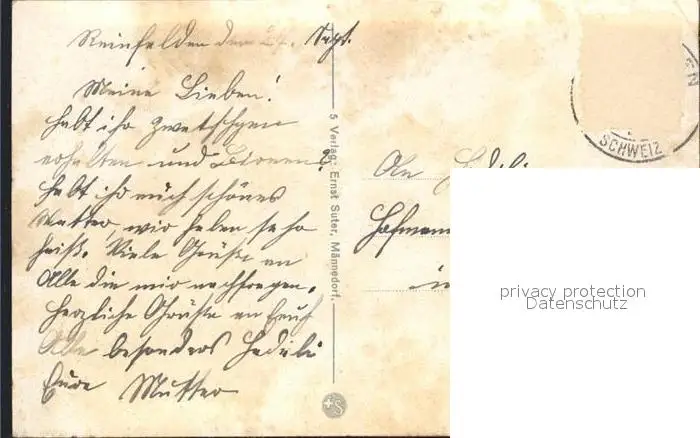 Reinfelden den 24. Sept.
Meine Lieben!
habt ihr Zwetschgen
erhalten und Birnen?
habt ihr auch schönes
Wetter, wir haben sehr
heiß. Viele Grüße an
Alle die mir nachfragen.
Herzliche Grüße an Euch
Alle besonders Hedili
Eure Mutter
5 Verlag: Ernst Suter, Männedorf.
S
SCHWEIZ
An Hedili
Hofmann
in
privacy protection
Datenschutz